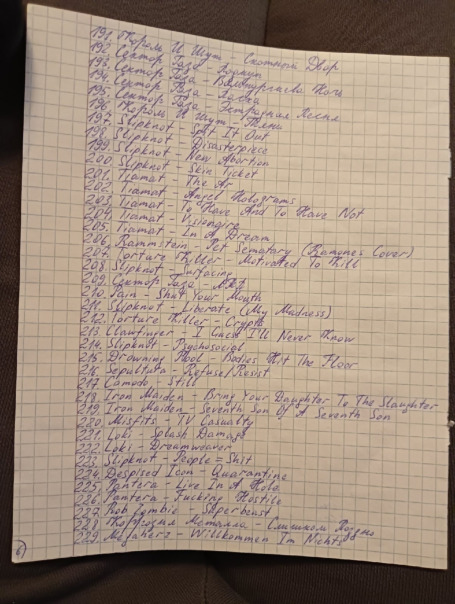 191. Король И Шут - Скотный Двор
192. Сектор Газа -
193. Сектор Газа - Вальпургиева Ночь
194. Сектор Газа -
195. Сектор Газа - Эстрадная Песня
196. Король И Шут -
197. Slipknot - Spit It Out
198. Slipknot - Disasterpiece
199. Slipknot - New Abortion
200. Slipknot - Skin Ticket
201. Tiamat - The Ar
202. Tiamat - Angel Holograms
203. Tiamat - To Have And To Have Not
204. Tiamat - Visionaire
205. Tiamat - In A Dream
206. Rammstein - Pet Sematary (Ramones Cover)
207. Torture Killer - Motivated To Kill
208. Slipknot - Surfacing
209. Сектор Газа -
210. Pain - Shut Your Mouth
211. Slipknot - Liberate (My Madness)
212. Torture Killer - Crypts
213. Clawfinger - I Guess I'll Never Know
214. Slipknot - Psychosocial
215. Drowning Pool - Bodies Hit The Floor
216. Sepultura - Refuse/Resist
217. Comodo - Still
218. Iron Maiden - Bring Your Daughter To The Slaughter
219. Iron Maiden - Seventh Son Of A Seventh Son
220. Misfits - TV Casualty
221. Loki - Splash Damage
222. Loki - Dreamweaver
223. Slipknot - People = Shit
224. Despised Icon - Quarantine
225. Pantera - Live In A Hole
226. Pantera - Fucking Hostile
227. Rob Zombie - Superbeast
228. Коррозия Металла - Слишком Поздно
229. Megaherz - Willkommen Im Nichts
6)